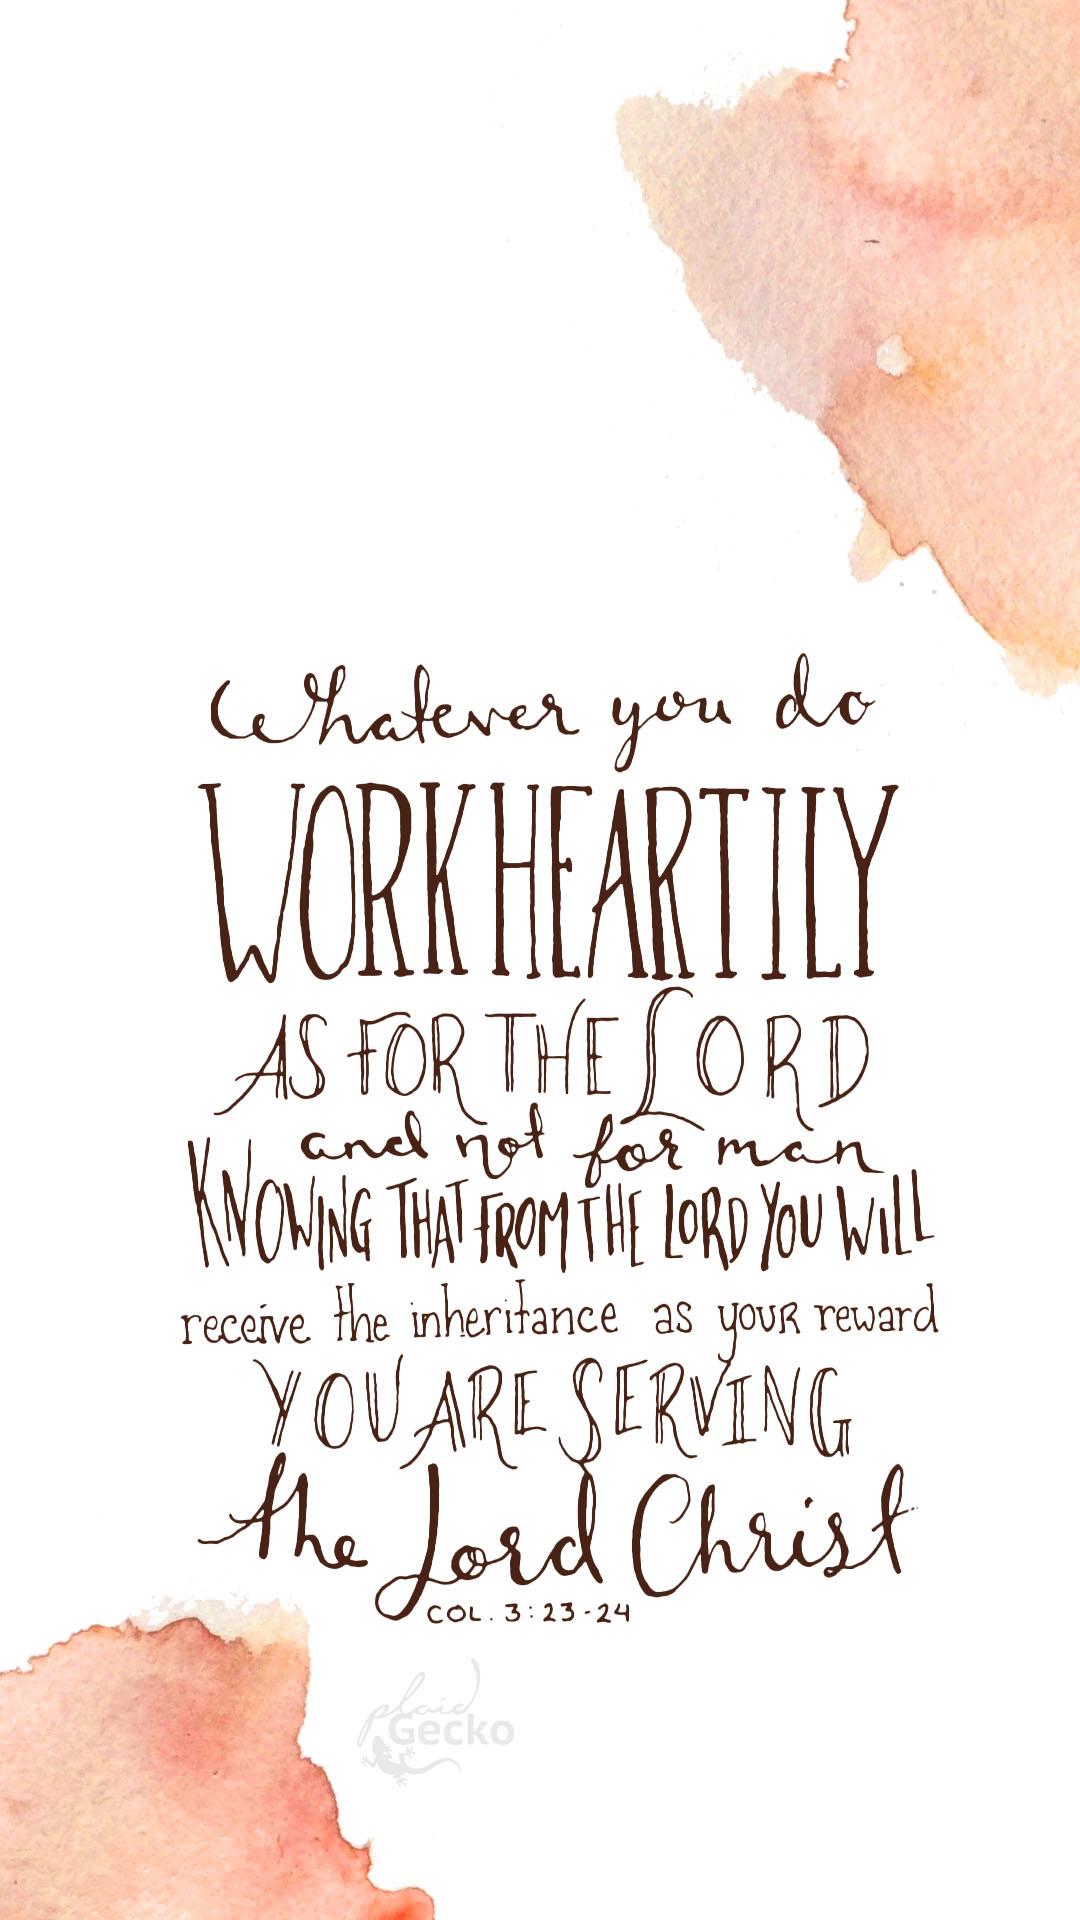 Whatever you do
WORK HEARTILY
AS FOR THE LORD
and not for man
KNOWING THAT FROM THE LORD YOU WILL
receive the inheritance as your reward
YOU ARE SERVING
the Lord Christ
COL. 3:23-24
plaid
Gecko